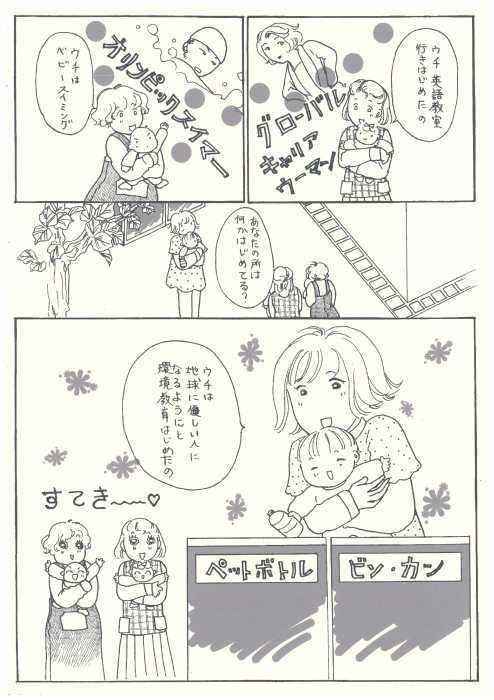 ウチ 英語教室
行きはじめたの
グローバル
キャリア
ウーマン
ウチは
ベビースイミング
オリンピックスイマー
あなたの所は
何かはじめてる？
ウチは
地球に優しい人に
なるようにと
環境教育はじめたの
すてき〜〜♡
ペットボトル
ビン・カン